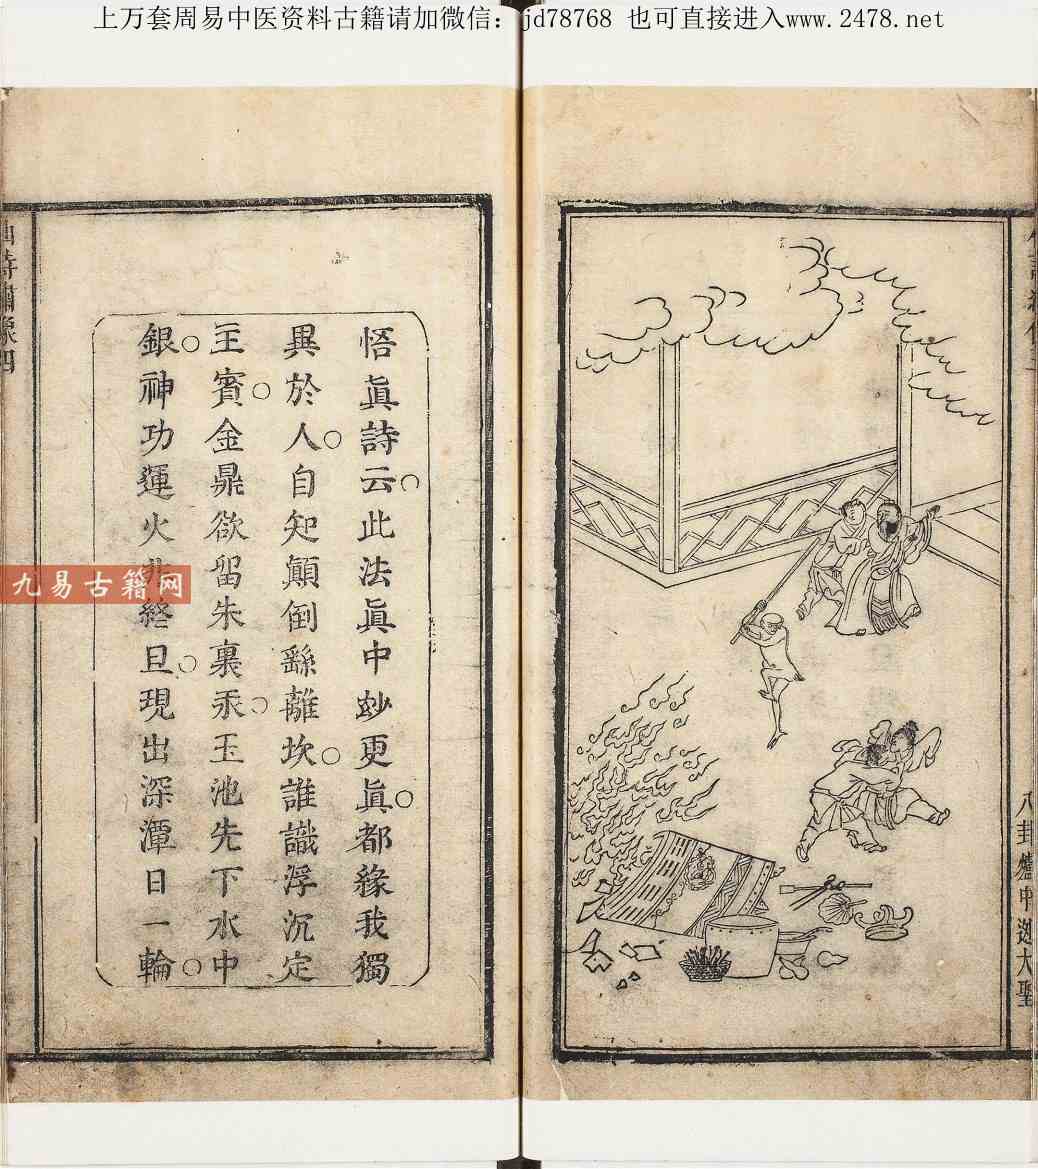 上万套周易中医资料古籍请加微信：jd78768 也可直接进入www.2478.net
八卦爐中迯大聖
悟眞詩云○此法眞中玅更眞○都緣我獨
異於人○自知顛倒繇離坎○誰識浮沉定
主賓○金鼎欲留朱裏汞○玉池先下水中
銀○神功運火非終旦○現出深潭日一輪○
九易古籍网